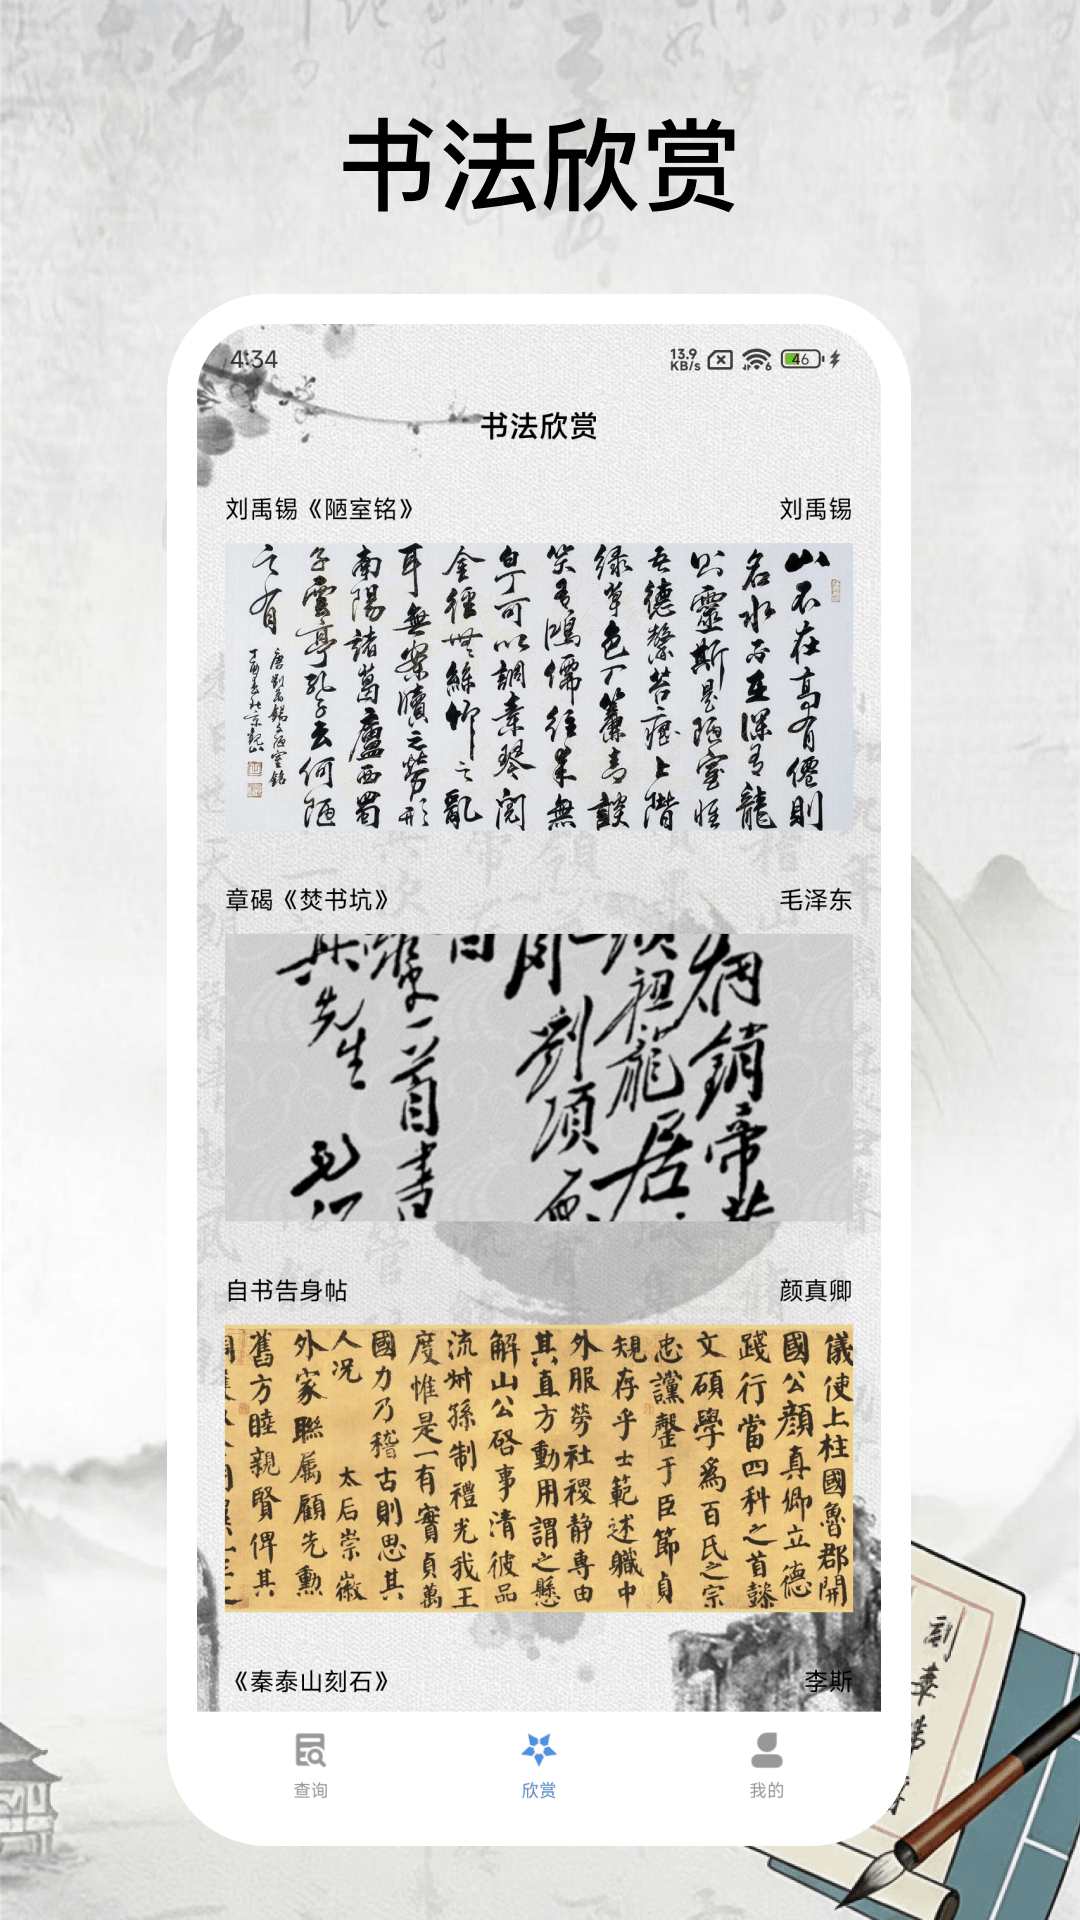 书法欣赏
4:34
13.9
KB/s
6
46
书法欣赏
刘禹锡《陋室铭》 刘禹锡
山不在高有僊則
名水不在深有龍
則靈斯是陋室惟
吾德馨苔痕上階
綠草色入簾青談
笑有鴻儒往来無
白丁可以調素琴閱
金經無絲竹之亂
耳無案牘之勞形
南陽諸葛廬西蜀
子雲亭孔子云何陋
之有
唐劉禹錫文陋室銘
章碣《焚书坑》 毛泽东
烟銷帝
祖龍居
劉項原
一首書
先生
自书告身帖 颜真卿
儀使上柱國魯郡開
國公顏真卿立德
踐行當四科之首懿
文碩學爲百氏之宗
忠讜罄于臣節貞
規存乎士範述職中
外服勞社稷静專由
其直方動用謂之懸
解山公啓事清彼品
流叔孫制禮光我王
度惟是一有實貞萬
國力乃稽古則思其
人况 太后崇徽
外家聯属顧先勳
舊方睦親賢俾其
《秦泰山刻石》 李斯
查询 欣赏 我的